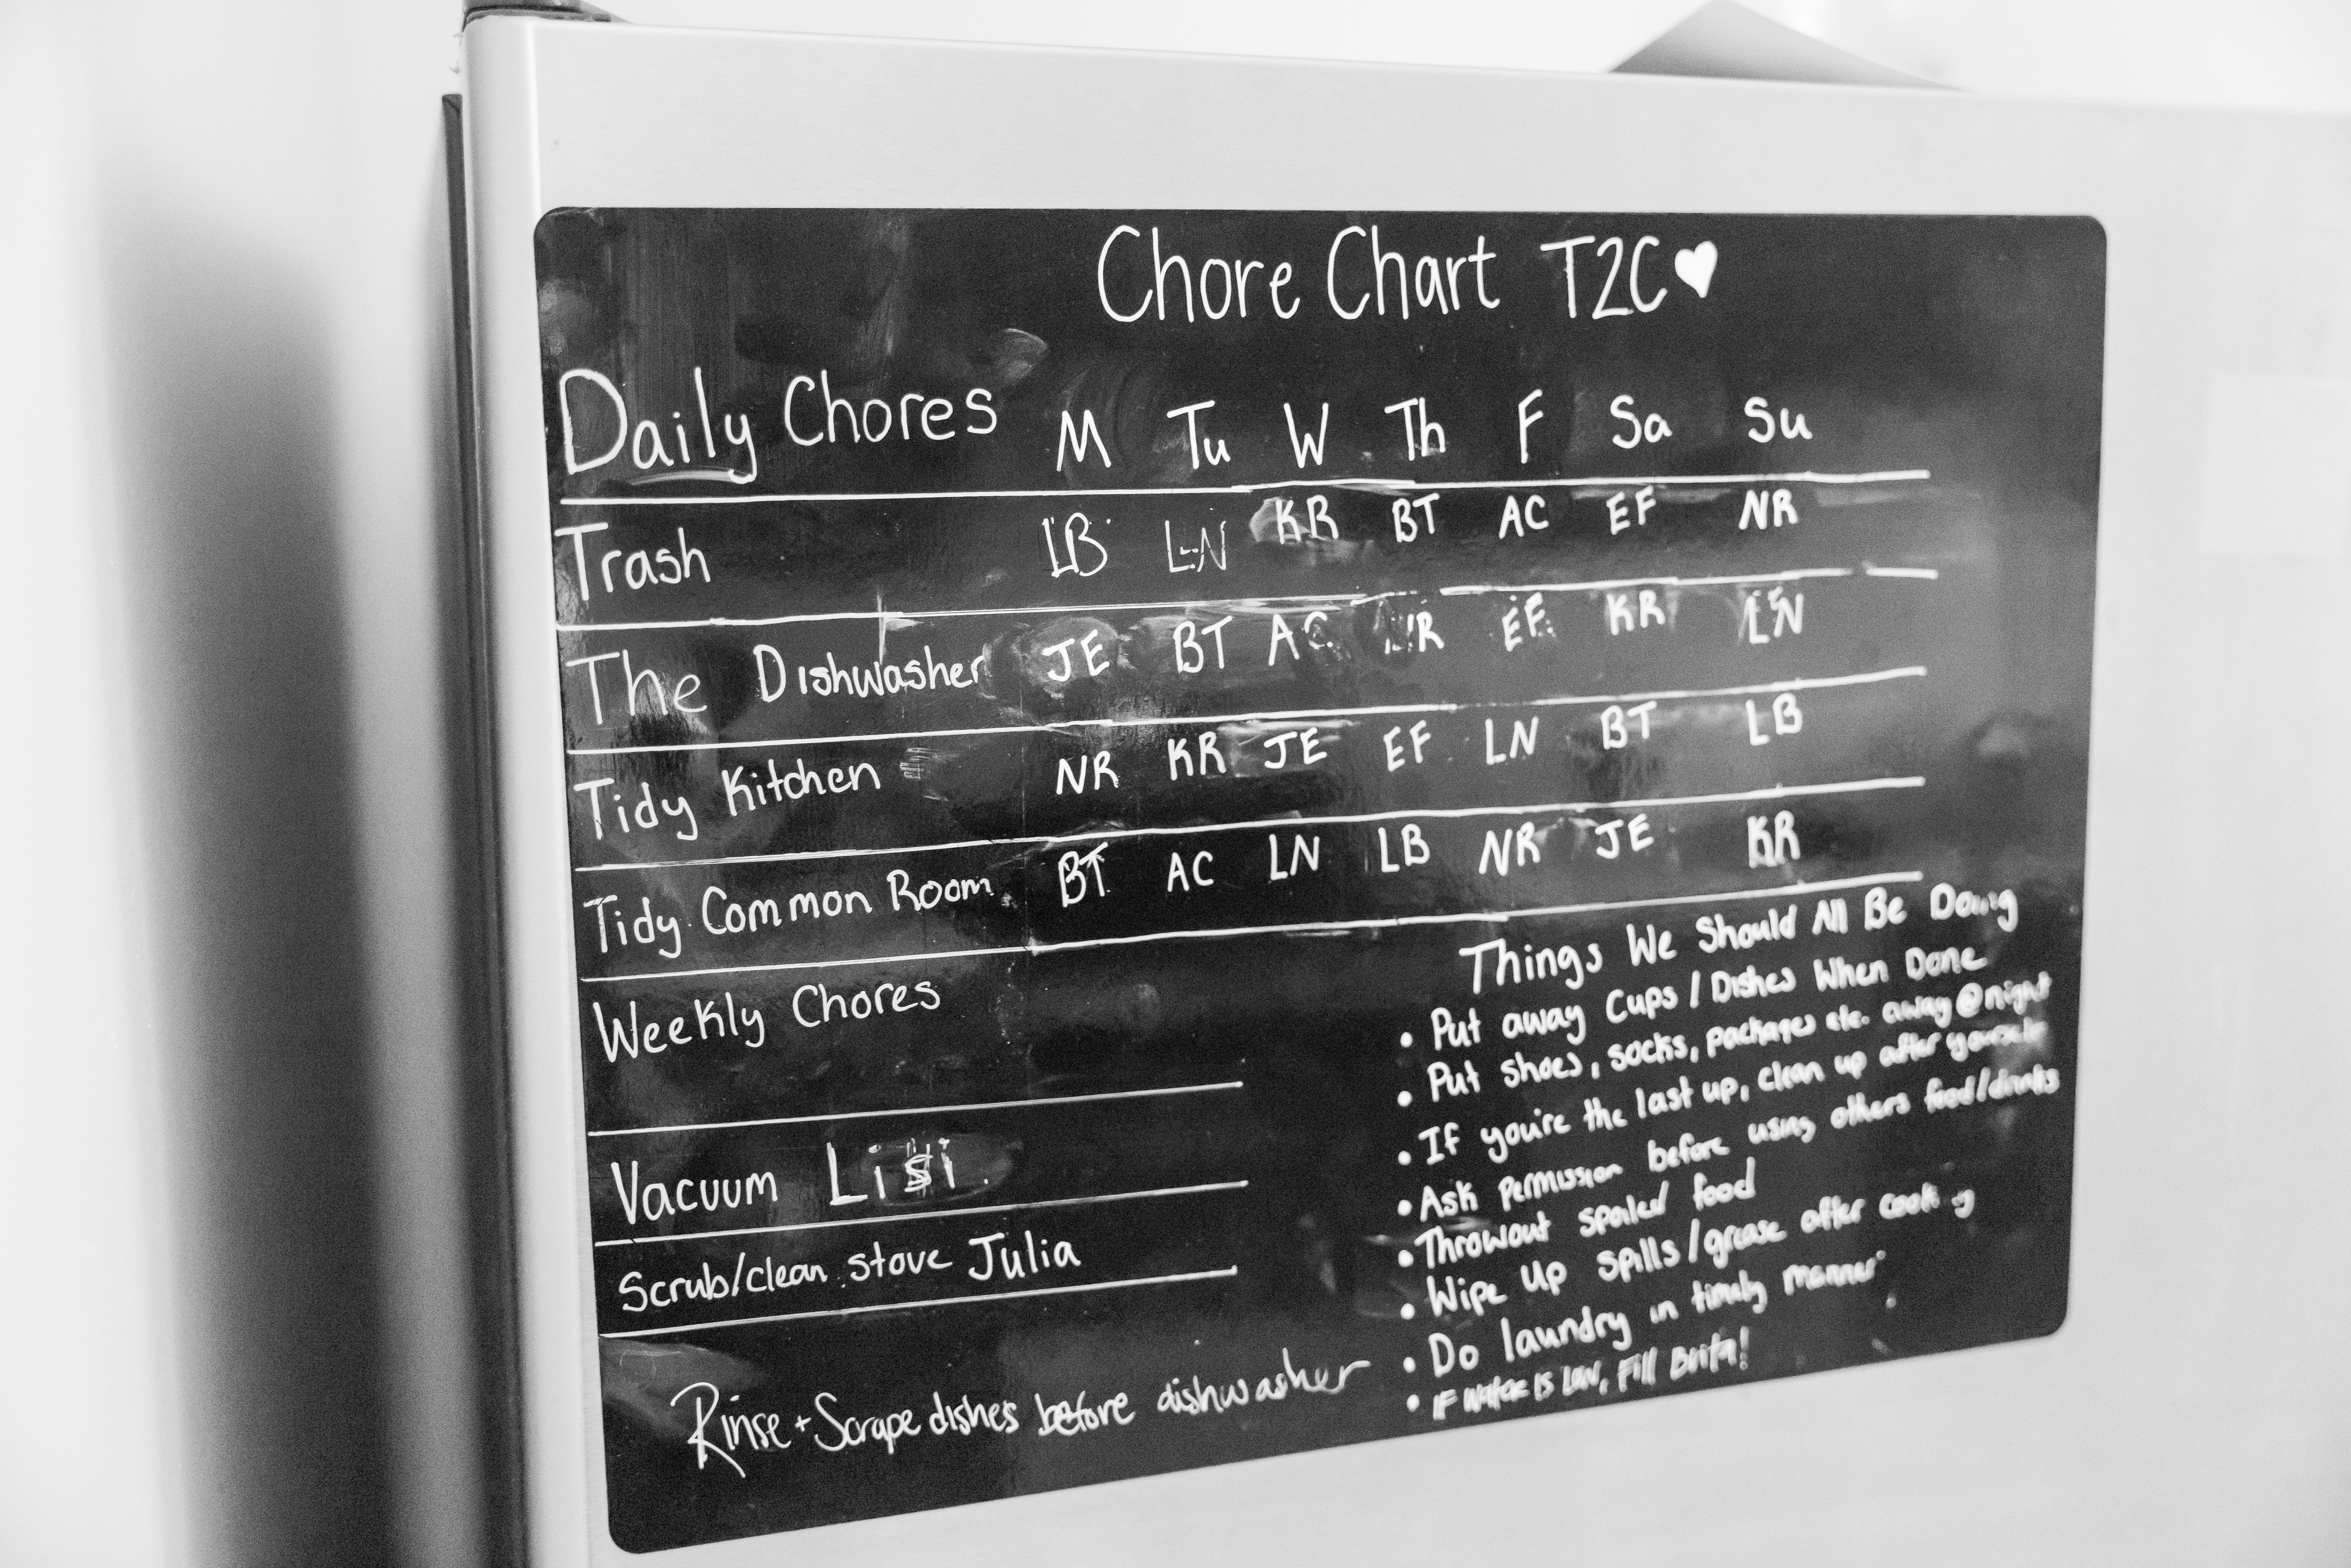 Chore Chart T2C
Daily Chores M Tu W Th F Sa Su
Trash LB LN KR BT AC EF NR
The Dishwasher JE BT AC EF KR LN
Tidy Kitchen NR KR JE EF LN BT LB
Tidy Common Room BT AC LN LB NR JE KR
Weekly Chores
Vacuum Lisi
Scrub/clean stove Julia
Rinse + Scrape dishes before dishwasher
Things We Should All Be Doing
• Put away Cups / Dishes When Done
• Put shoes, socks, packages etc. away @ night
• If you're the last up, clean up after yourself
• Ask permission before using others food/drinks
• Throwout spoiled food
• Wipe Up spills/grease after cooking
• Do laundry in timely manner
• IF water IS low, Fill Brita!